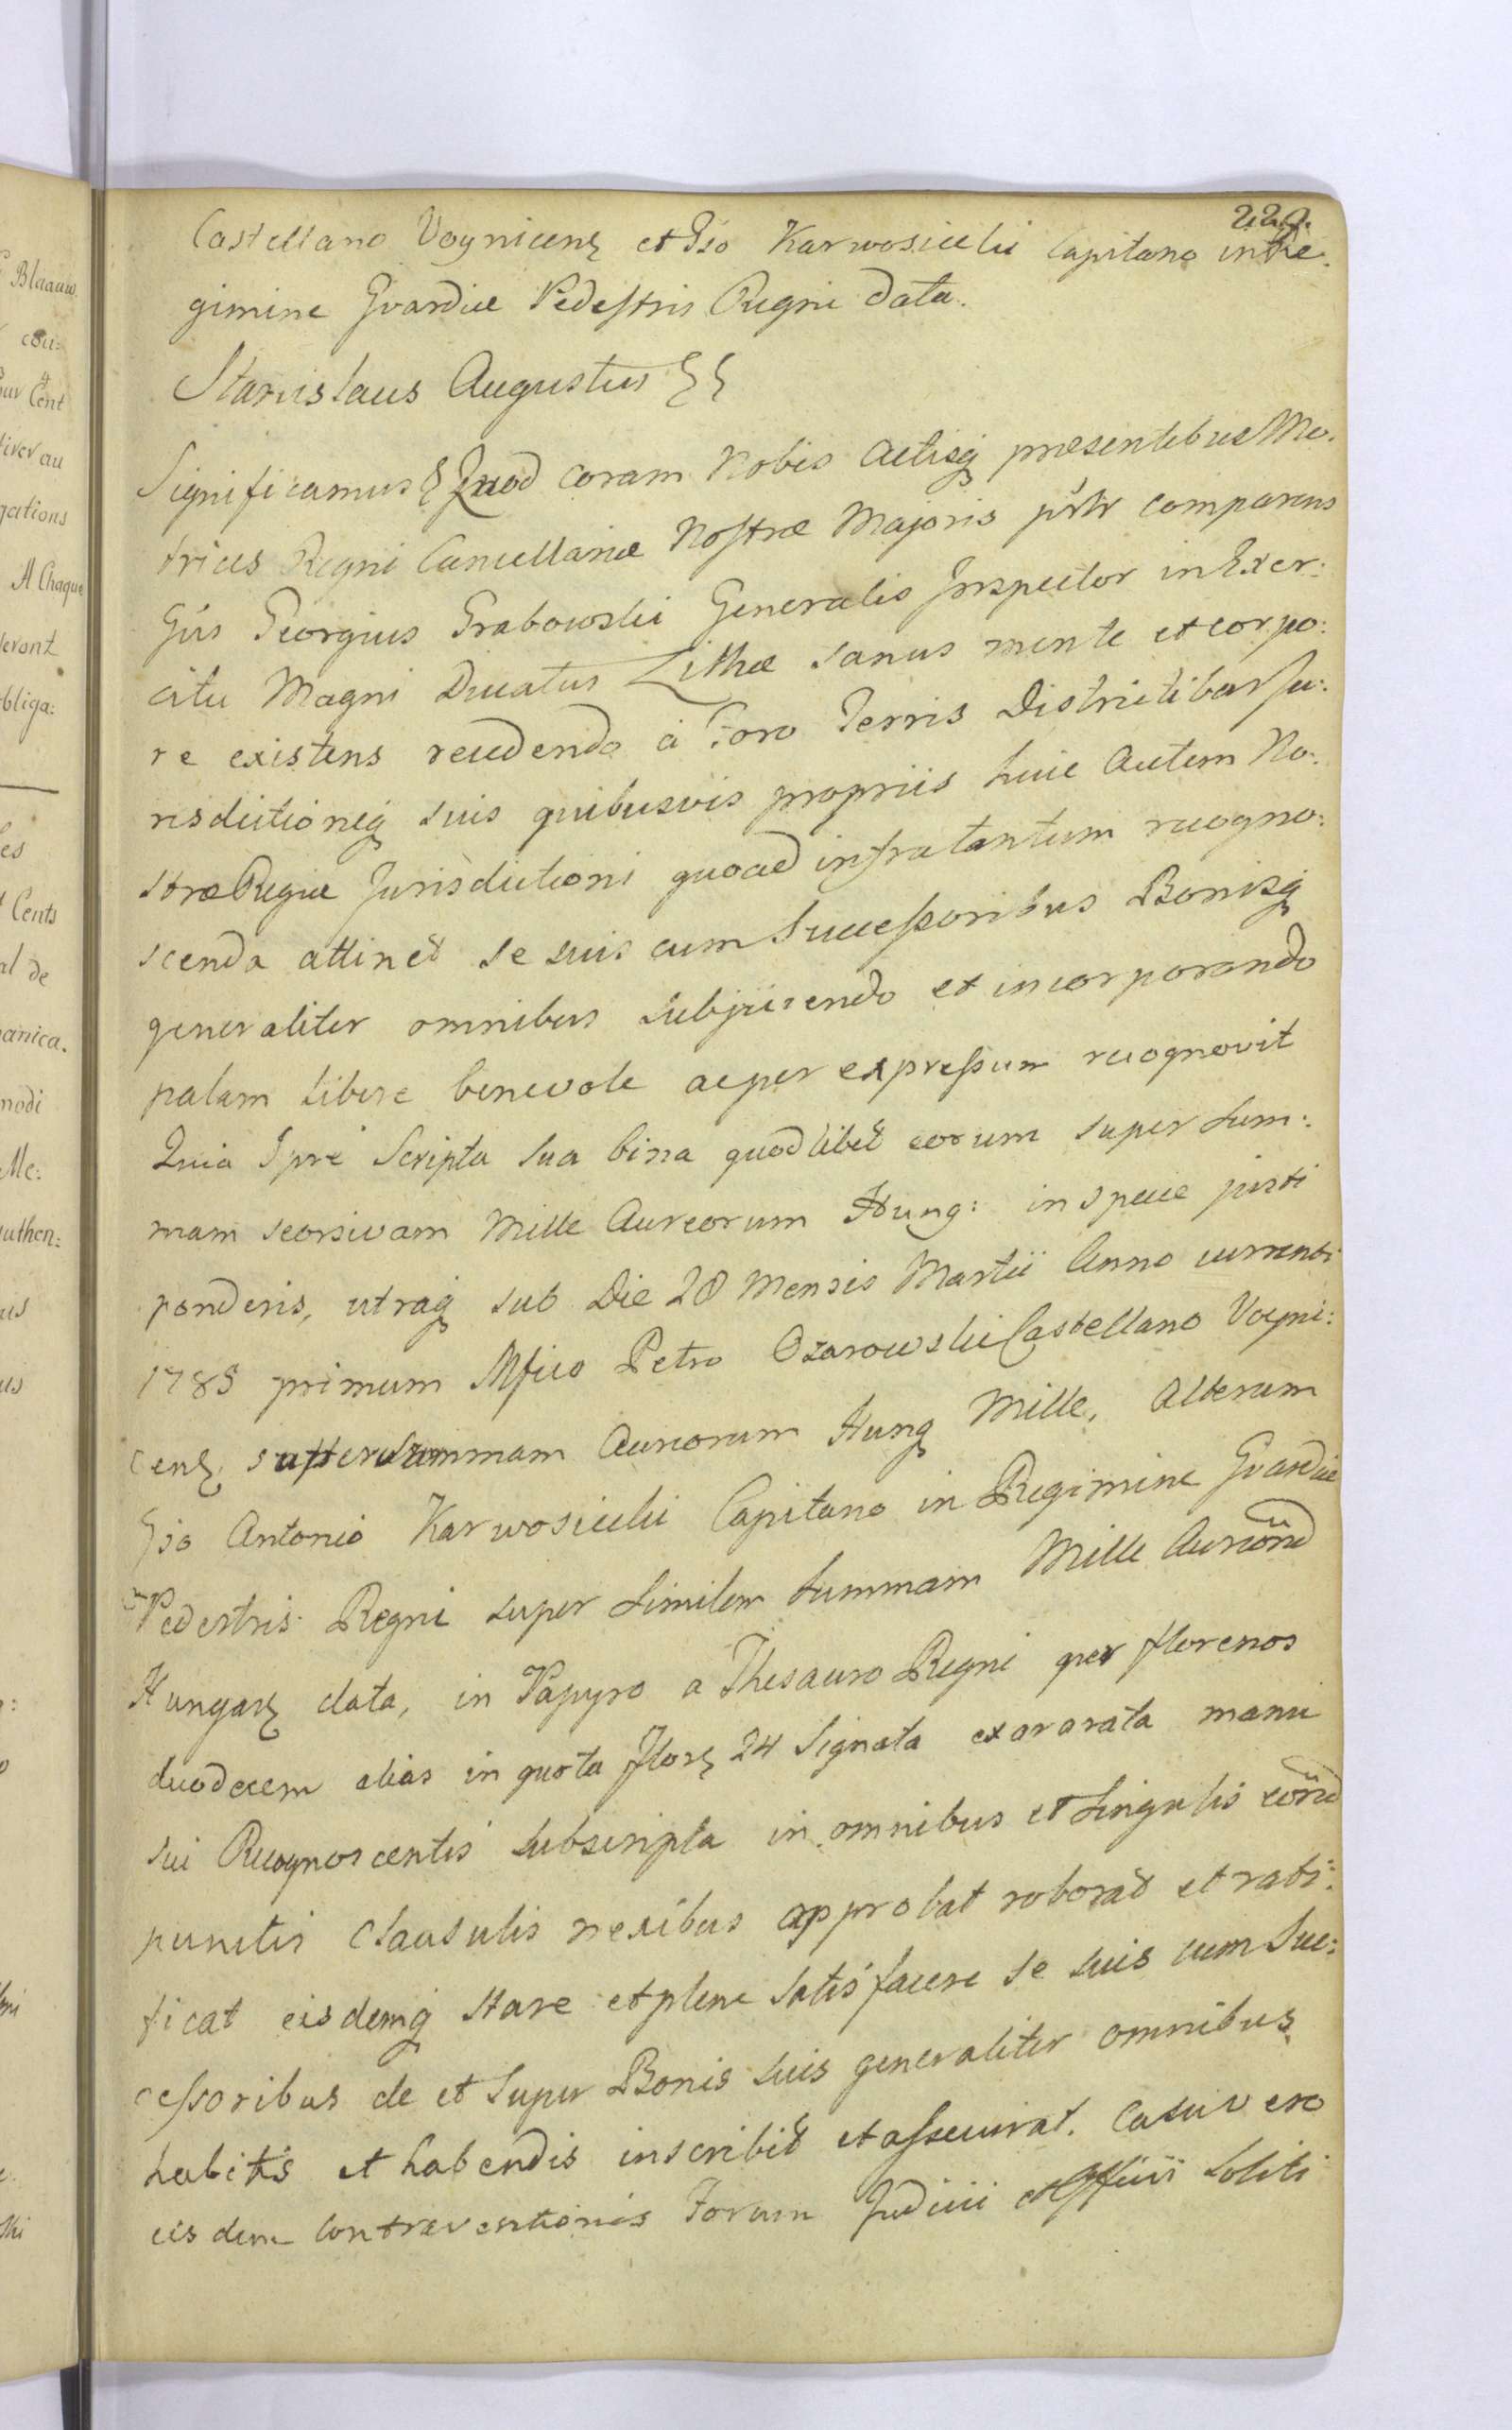 229.
Castellano Voynicenς et Gso Karwosiecki Capitano in Re-
gimine Gvardiæ Pedestris Regni data.
Stanislaus Augustus ςς
Significamus ς Quod coram Nobis Actisq præsentibus Me-
trices Regni Cancellariæ Nostræ Majoris psltr comparens
Gsus Georgius Grabowski Generalis Inspector in Exer:
citu Magni Ducatus Litthæ sanus mente et corpo:
re existens recedendo à Foro Terris Districtibus Ju:
risdictioneq suis quibusvis propriis huic autem No:
stræ Regiæ Jurisdictioni quoad infra tantum recogno:
scenda attinet se suis cum Successoribus Bonisq
generaliter omnibus subjiciendo et incorporando
palam libere benevole ac per expressum recognovit
Quia Ipse Scripta sua bina quodlibet eorum super Sum:
mam seorsivam Mille Aureorum Hung: in specie justi
ponderis, utraq sub Die 28 Mensis Martii Anno currenti
1785 primum Mfico Petro Ożarowski Castellano Voyni:
cenς super Summam Aureorum Hung Mille, Alterum
Gso Antonio Karwosiecki Capitano in Regimine Gvardiæ
Pedestris Regni super similem Summam Mille Aureoru
Hungarς data, in Papyro a Thesauro Regni per florenos
duodecem alias in quota florς 24 Signata exararata manu
sui Recognoscentis subscripta in omnibus et singulis eoru
punctis clausulis nexibus approbat roborat et rati:
ficat eisdemq stare et plene satisfacere se suis cum Suc:
cessoribus de et super Bonis suis generaliter omnibus
habitis et habendis inscribit et assecurat. Casu vero
eisdem contraventionis Forum Judicii et Officii soliti
Blaauw.
cou:
Cent
iver au
gations
A Chaque
leront
bliga:
es
Cents
al de
anica.
modi
Me:
uthen:
us
us